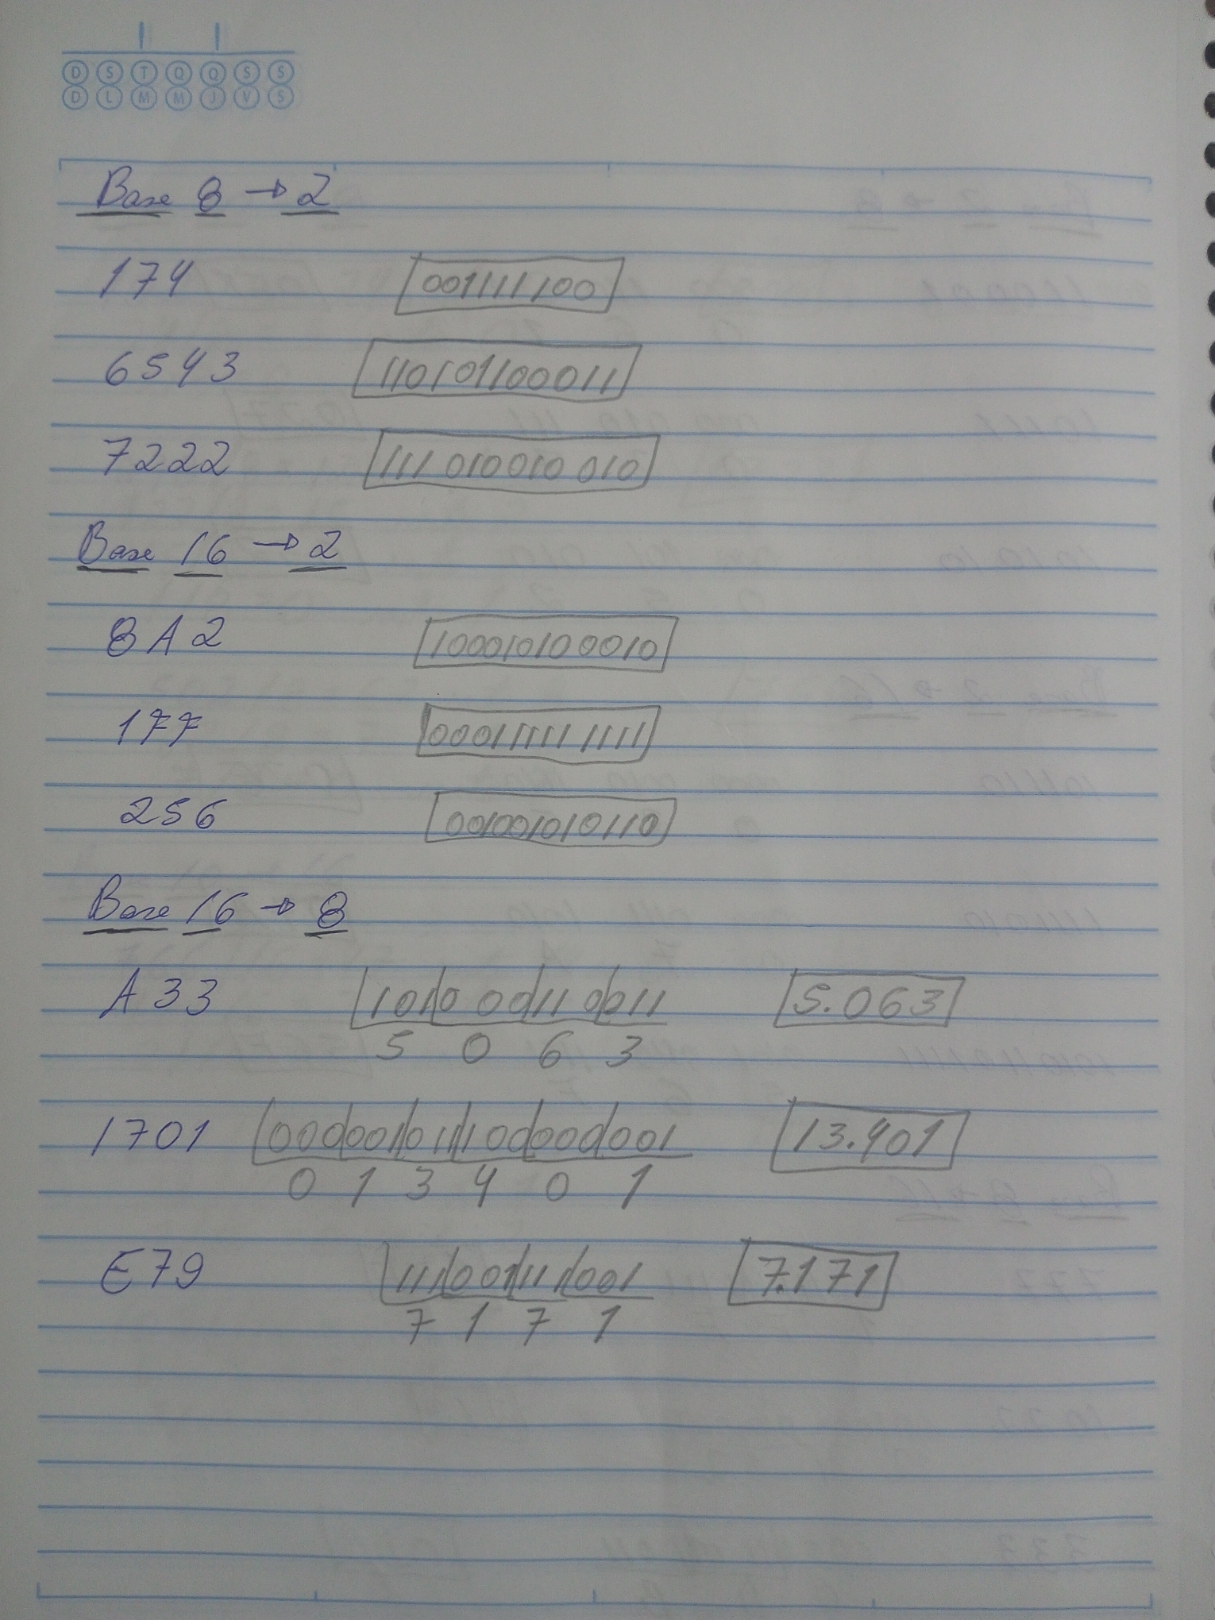 D S T Q Q S S
D L M M J V S
Base 8 → 2
174 001111100
6543 110101100011
7222 111010010010
Base 16 → 2
8A2 100010100010
1FF 000111111111
256 001001010110
Base 16 → 8
A33 101000110011 5.063
5 0 6 3
1701 000001011100000001 13.401
0 1 3 4 0 1
E79 111001111001 7.171
7 1 7 1